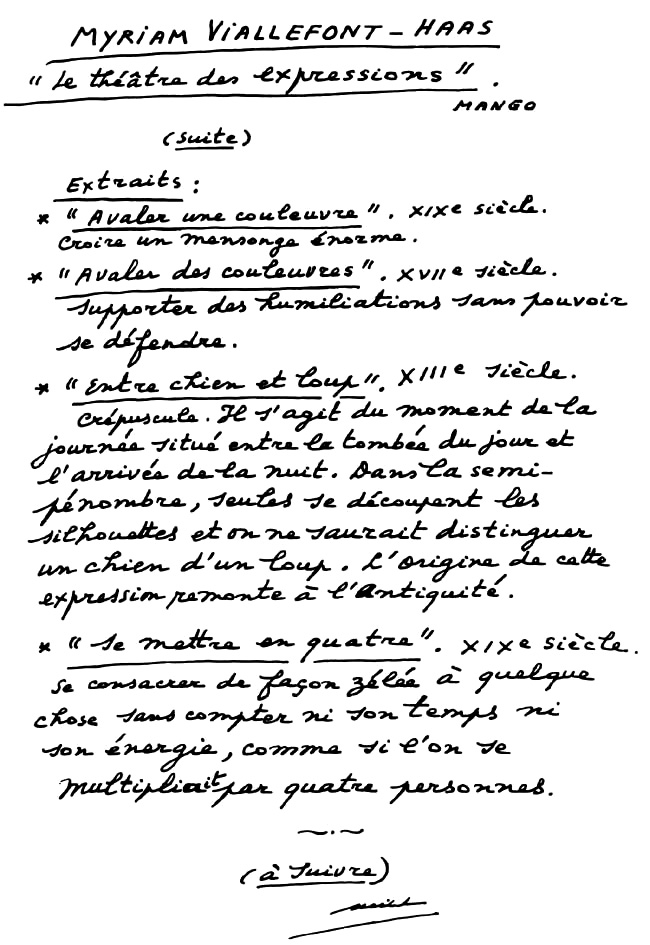 MYRIAM VIALLEFONT-HAAS
"Le théâtre des expressions".
MANGO
(suite)
Extraits :
* "Avaler une couleuvre". XIXe siècle.
Croire un mensonge énorme.
* "Avaler des couleuvres". XVIIe siècle.
Supporter des humiliations sans pouvoir
se défendre.
* "Entre chien et loup". XIIIe siècle.
Crépuscule. Il s'agit du moment de la
journée situé entre la tombée du jour et
l'arrivée de la nuit. Dans la semi-
pénombre, seules se découpent les
silhouettes et on ne saurait distinguer
un chien d'un loup. L'origine de cette
expression remonte à l'Antiquité.
* "Se mettre en quatre". XIXe siècle.
Se consacrer de façon zélée à quelque
chose sans compter ni son temps ni
son énergie, comme si l'on se
multipliait par quatre personnes.
(à suivre)